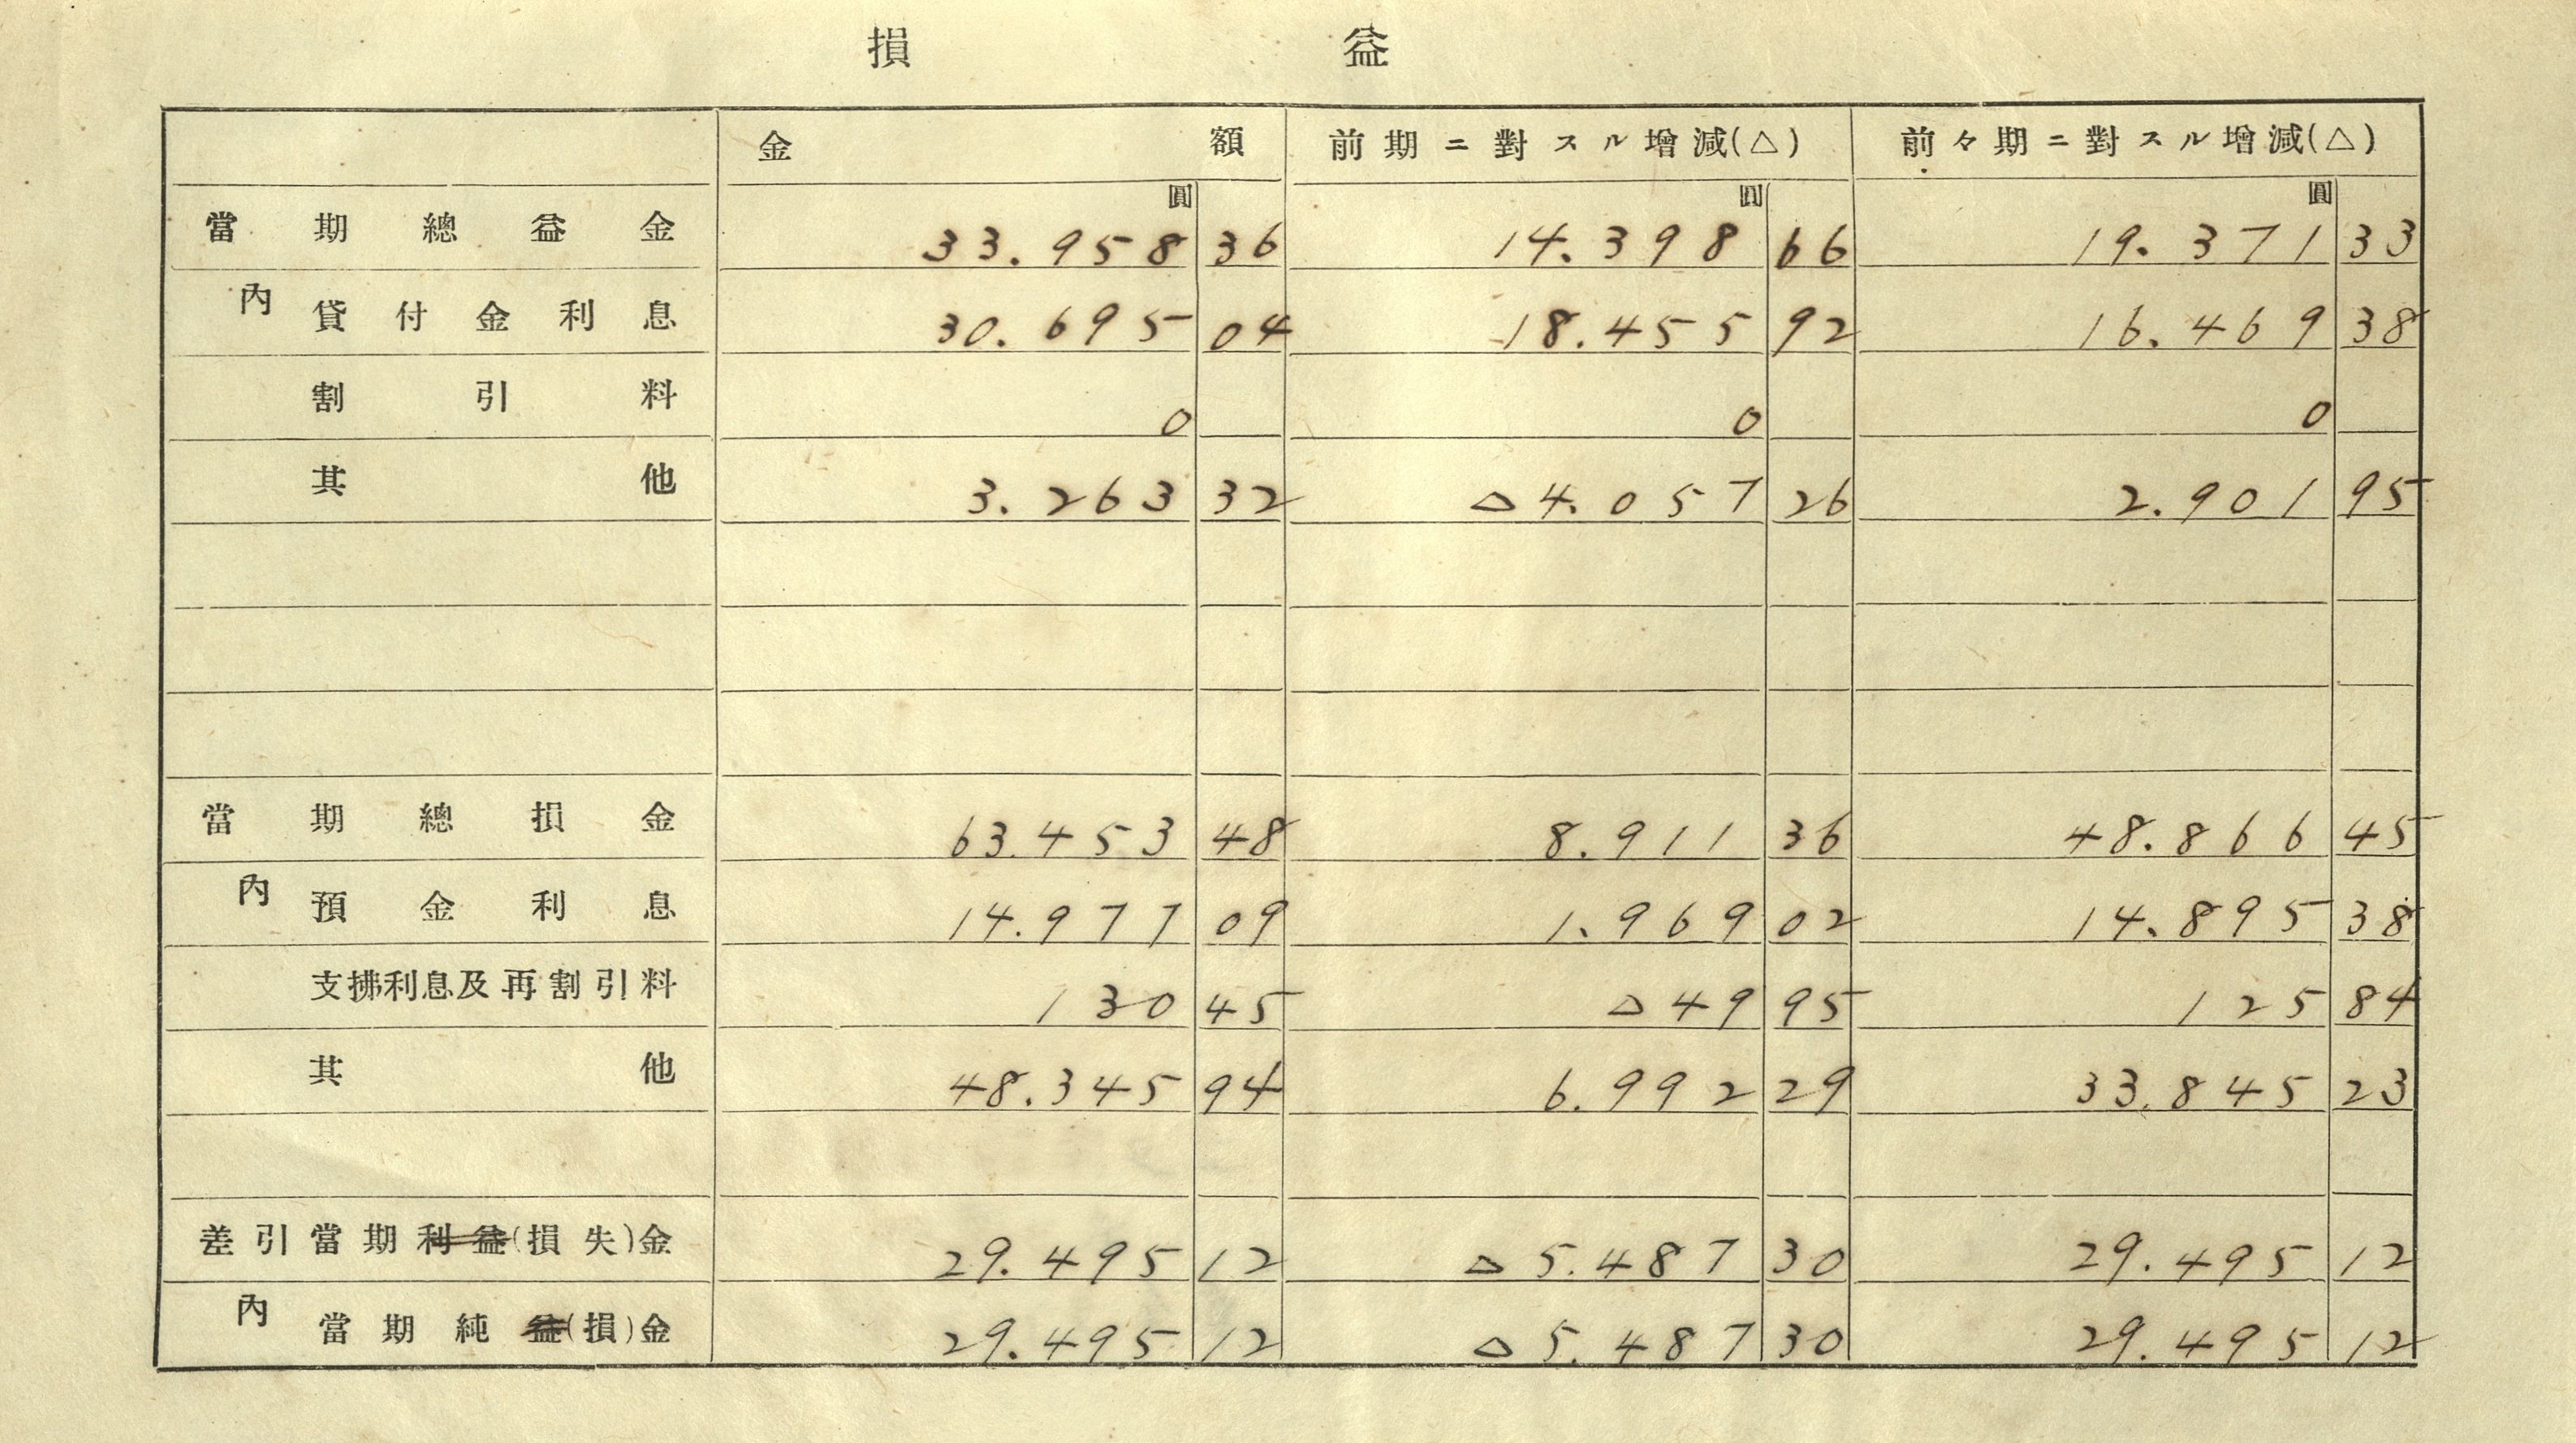 損 益
金 額 前期ニ對スル增減(△) 前々期ニ對スル增減(△)
圓 圓 圓
當期總益金 33.958 36 14.398 66 19.371 33
內 貸付金利息 30.695 04 18.455 92 16.469 38
割引料 0 0 0
其他 3.263 32 △4.057 26 2.901 95
當期總損金 63.453 48 8.911 36 48.866 45
內 預金利息 14.977 09 1.969 02 14.895 38
支拂利息及再割引料 130 45 △49 95 125 84
其他 48.345 94 6.992 29 33.845 23
差引當期利益(損失)金 29.495 12 △5.487 30 29.495 12
內 當期純益(損)金 29.495 12 △5.487 30 29.495 12